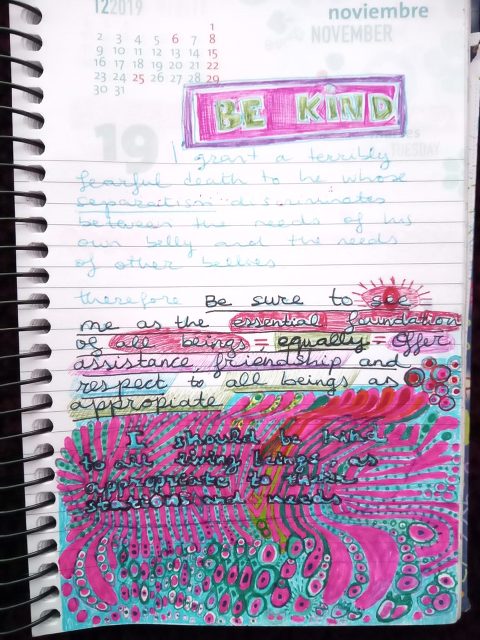 12 2019
noviembre
NOVEMBER
1
2 3 4 5 6 7 8
9 10 11 12 13 14 15
16 17 18 19 20 21 22
23 24 25 26 27 28 29
30 31
BE KIND
19
TUESDAY
I grant a terribly
fearful death to he whose
separatism discriminates
between the needs of his
own belly and the needs
of other bellies
therefore Be sure to see
me as the essential foundation
of all beings = equally = offer
assistance, friendship and
respect to all beings as
appropiate
I should be kind
to all living beings, as
appropriate to their
stations and needs